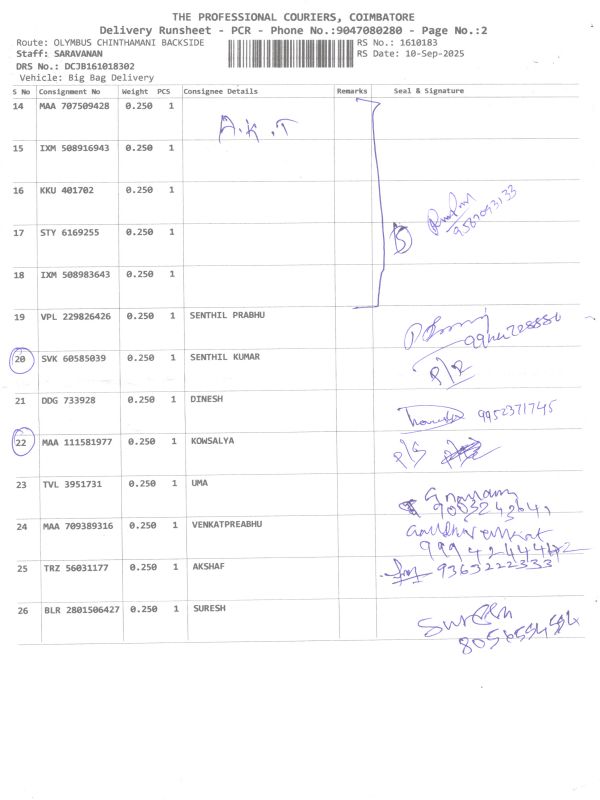 THE PROFESSIONAL COURIERS, COIMBATORE
Delivery Runsheet - PCR - Phone No.:9047080280 - Page No.:2
Route: OLYMBUS CHINTHAMANI BACKSIDE RS No.: 1610183
Staff: SARAVANAN RS Date: 10-Sep-2025
DRS No.: DCJB161018302
Vehicle: Big Bag Delivery
S No Consignment No Weight PCS Consignee Details Remarks Seal & Signature
14 MAA 707509428 0.250 1
A.K.T
15 IXM 508916943 0.250 1
16 KKU 401702 0.250 1
9587093133
17 STY 6169255 0.250 1
5
18 IXM 508983643 0.250 1
19 VPL 229826426 0.250 1 SENTHIL PRABHU
20 SVK 60585039 0.250 1 SENTHIL KUMAR
21 DDG 733928 0.250 1 DINESH 9952371745
22 MAA 111581977 0.250 1 KOWSALYA
23 TVL 3951731 0.250 1 UMA
24 MAA 709389316 0.250 1 VENKATPREABHU
25 TRZ 56031177 0.250 1 AKSHAF 9363222333
26 BLR 2801506427 0.250 1 SURESH